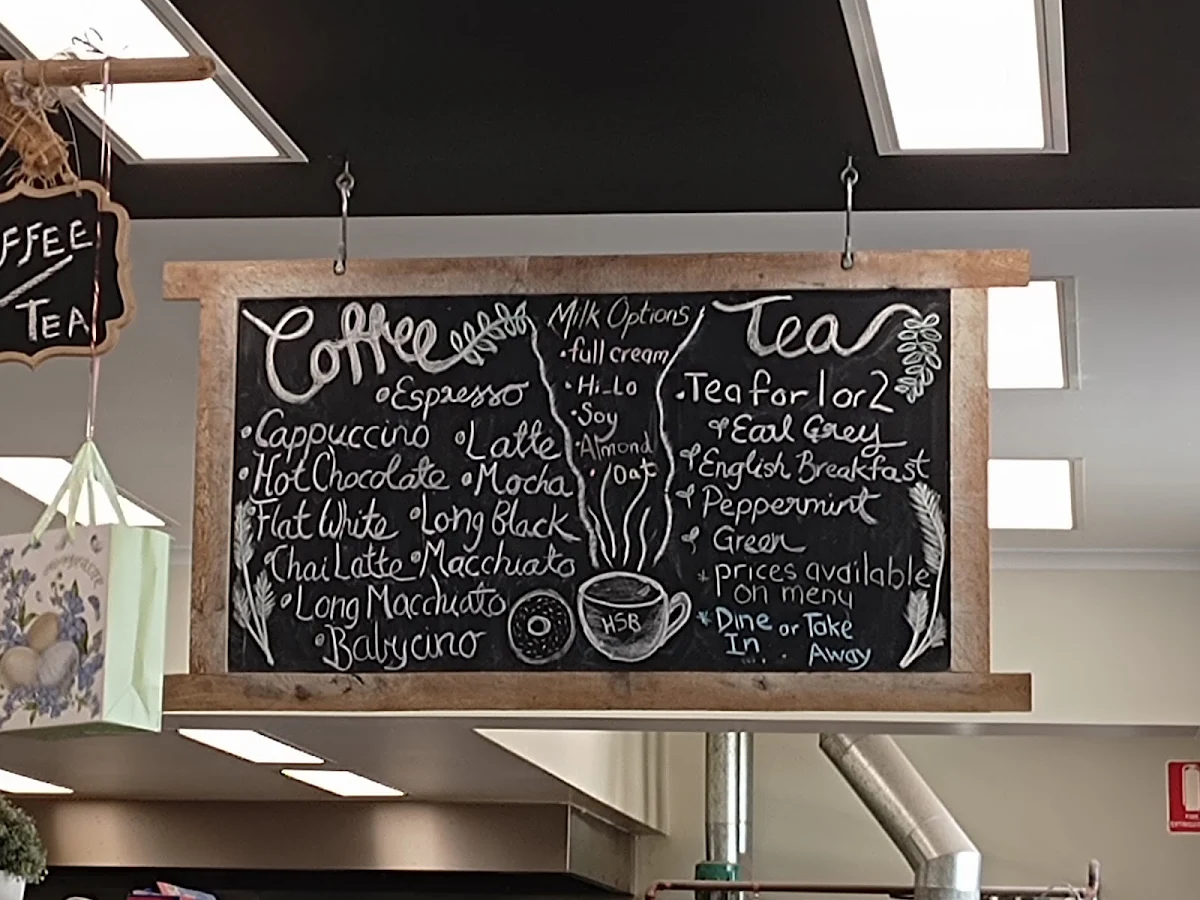 FFEE
TEA
Coffee
• Espresso
• Cappuccino • Latte
• Hot Chocolate • Mocha
• Flat White • Long Black
• Chai Latte • Macchiato
• Long Macchiato
• Babycino
Milk Options
• full cream
• Hi-Lo
• Soy
• Almond
• Oat
HSB
Tea
• Tea for 1 or 2
Earl Grey
English Breakfast
Peppermint
Green
* prices available
on menu
* Dine or Take
In Away